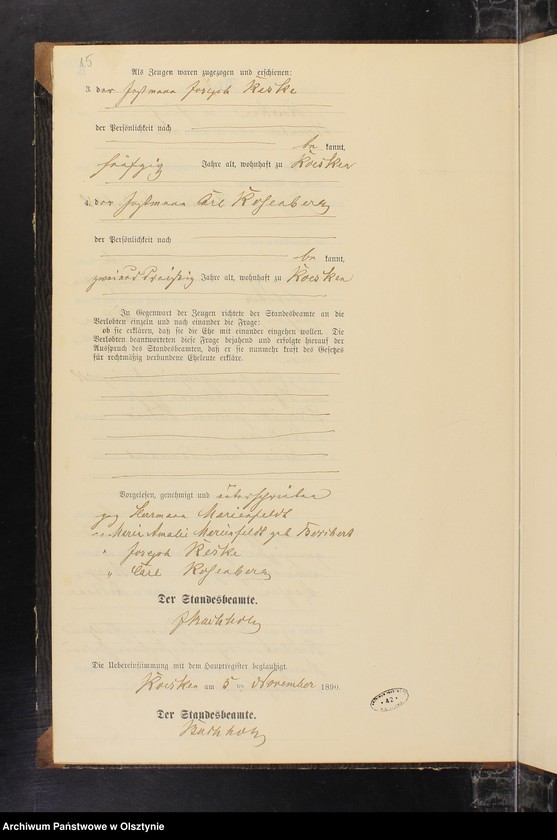 15
Als Zeugen waren zugezogen und erschienen:
3. der Instmann Joseph Reske
der Persönlichkeit nach
be kannt,
fünfzig Jahre alt, wohnhaft zu Koesken
4. der Instmann Carl Rosenberg
der Persönlichkeit nach
be kannt,
zweiunddreißig Jahre alt, wohnhaft zu Koesken
In Gegenwart der Zeugen richtete der Standesbeamte an die
Verlobten einzeln und nach einander die Frage:
ob sie erklären, daß sie die Ehe mit einander eingehen wollen. Die
Verlobten beantworteten diese Frage bejahend und erfolgte hierauf der
Ausspruch des Standesbeamten, daß er sie nunmehr kraft des Gesetzes
für rechtmäßig verbundene Eheleute erkläre.
Vorgelesen, genehmigt und unterschrieben
gez Herrmann Marienfeldt
" Marie Amalie Marienfeldt geb
" Joseph Reske
" Carl Rosenberg
Der Standesbeamte.
Buchholz
Die Uebereinstimmung mit dem Hauptregister beglaubigt.
Koesken am 5 ten November 1890.
Der Standesbeamte.
Buchholz
42
Archiwum Państwowe w Olsztynie